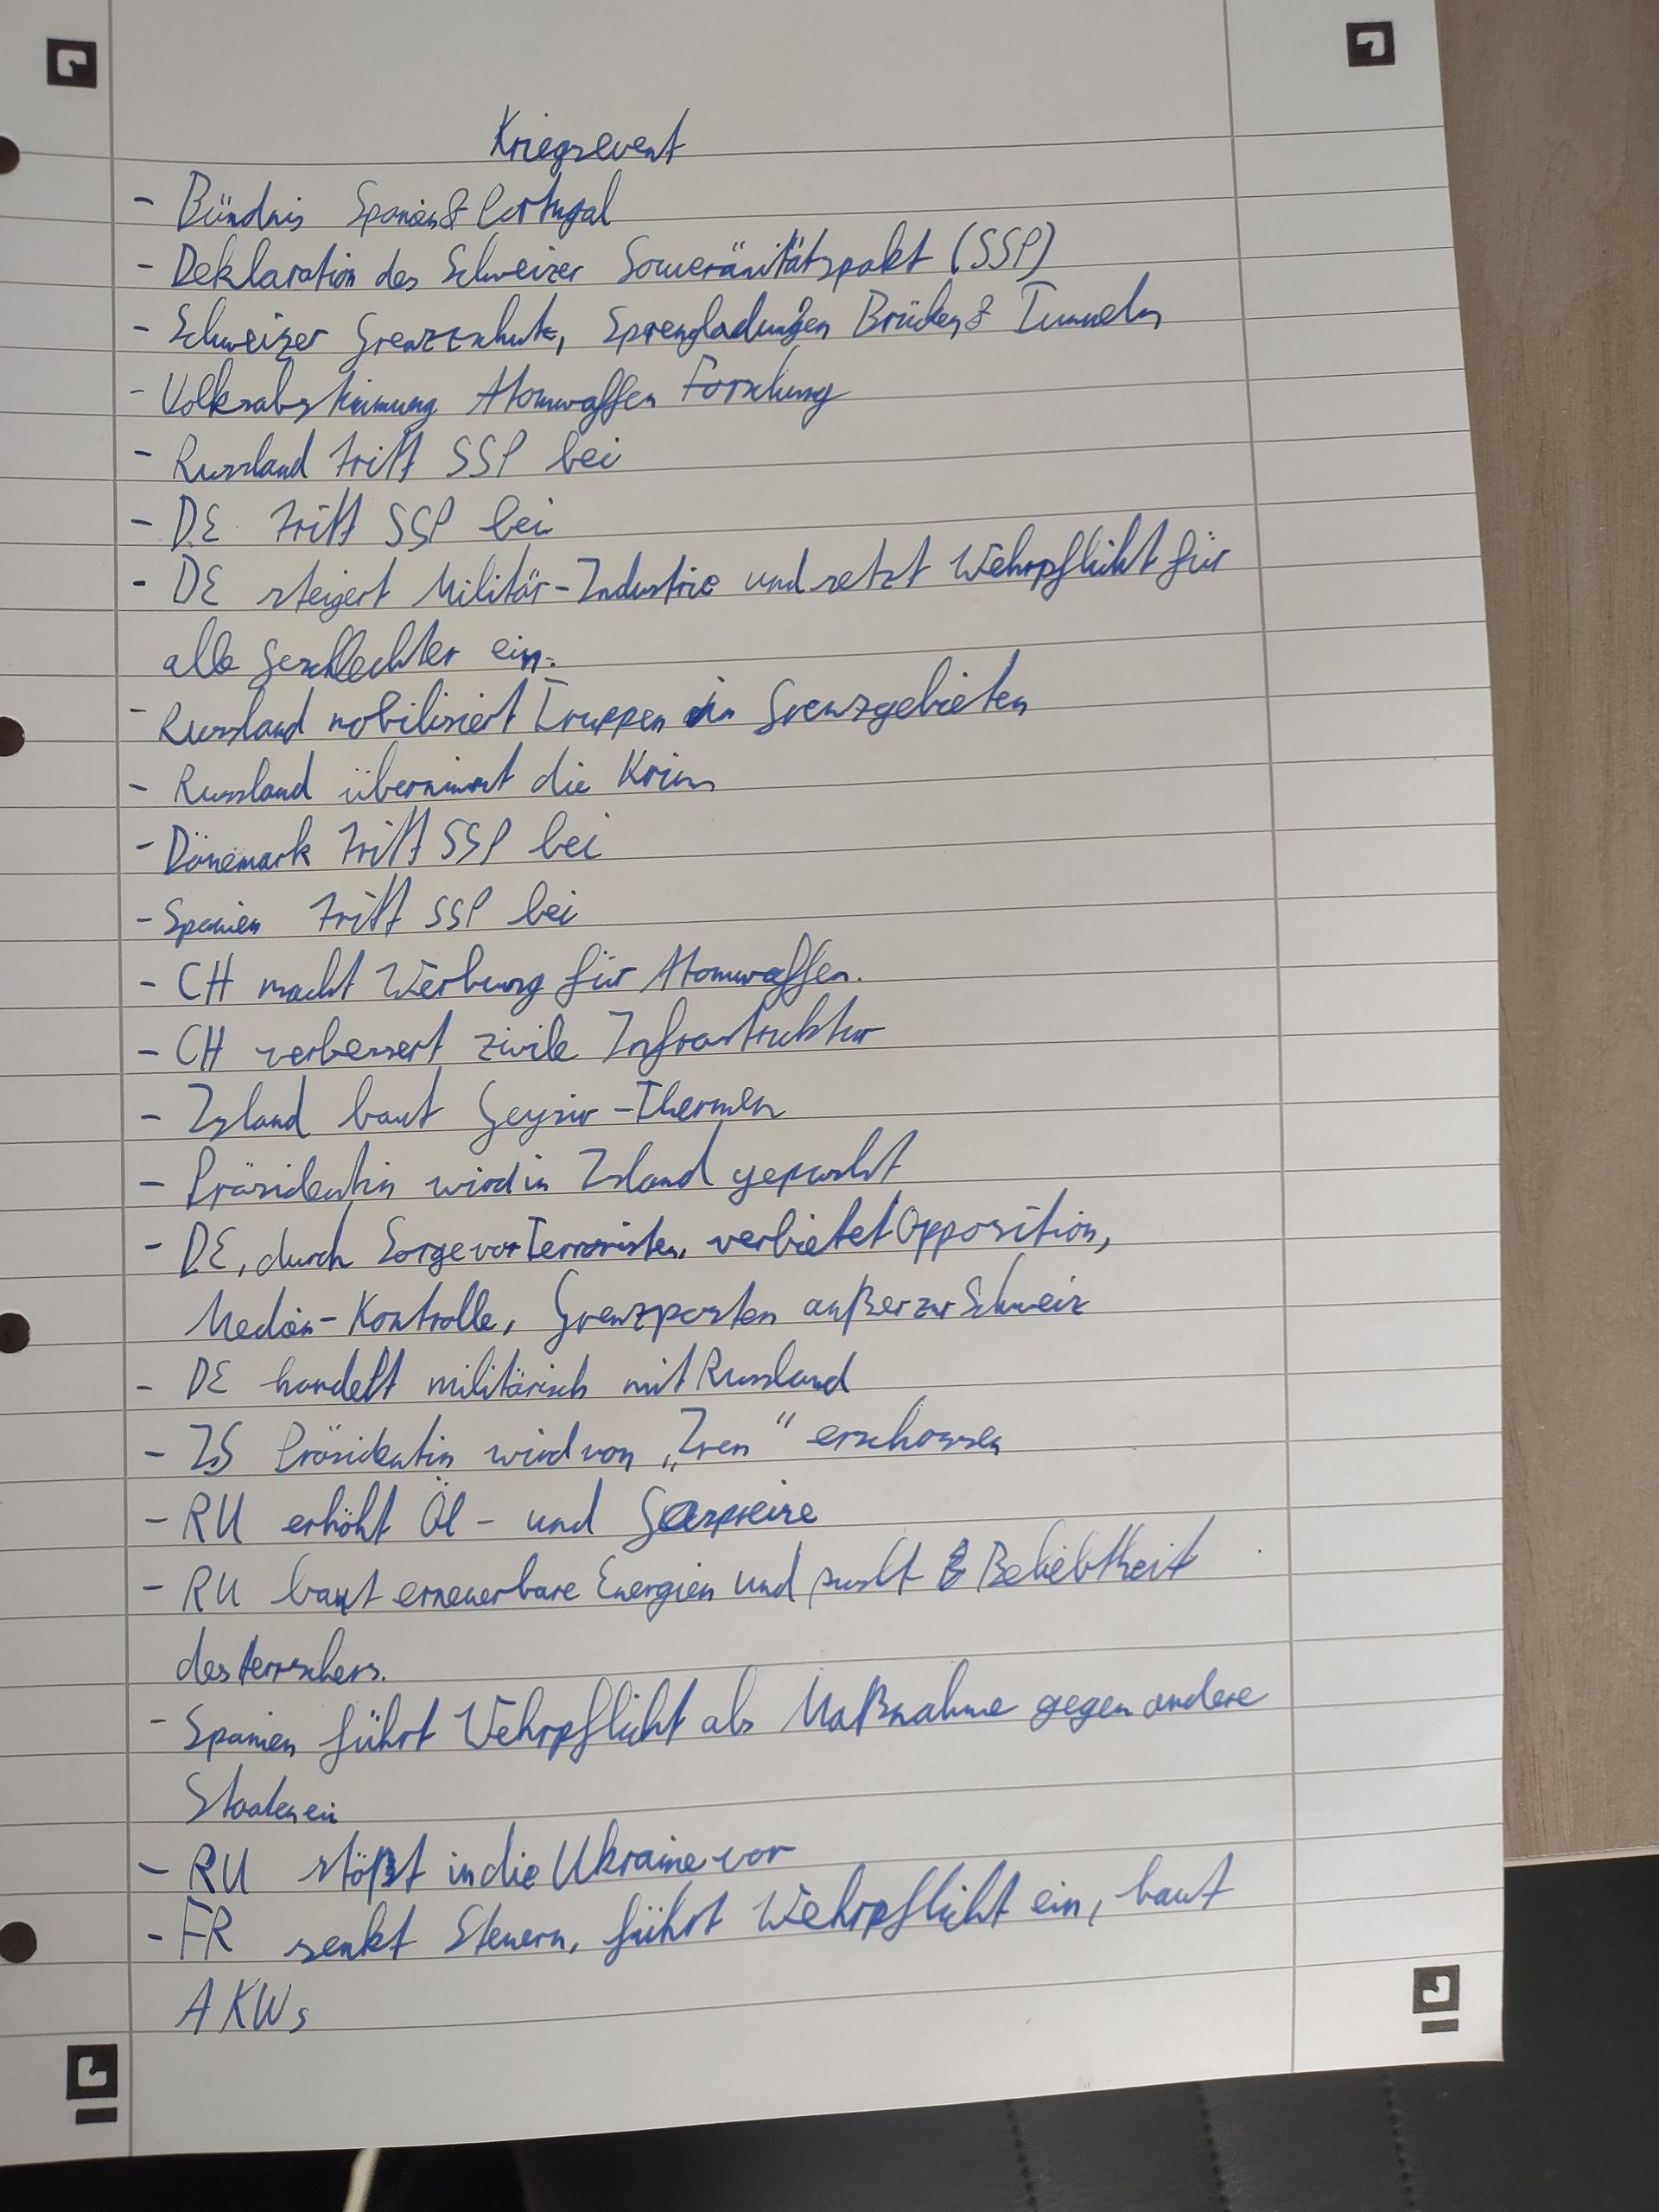 Kriegsevent
- Bündnis Spanien & Portugal
- Deklaration des Schweizer Souveränitätspakt (SSP)
- Schweizer Grenzschutz, Sprengladungen Brücken & Tunneln
- Volksabstimmung Atomwaffen Forschung
- Russland tritt SSP bei
- DE tritt SSP bei
- DE steigert Militär-Industrie und setzt Wehrpflicht für
alle Geschlechter ein.
- Russland mobilisiert Truppen in Grenzgebieten
- Russland übernimmt die Krim
- Dänemark tritt SSP bei
- Spanien tritt SSP bei
- CH macht Werbung für Atomwaffen.
- CH verbessert zivile Infrastruktur
- Island baut Geysir-Thermen
- Präsidentin wird in Island gepusht
- DE, durch Sorge vor Terroristen, verbietet Opposition,
Medien-Kontrolle, Grenzposten außer zur Schweiz
- DE handelt militärisch mit Russland
- IS Präsidentin wird von „Iren" erschossen
- RU erhöht Öl- und Gaspreise
- RU baut erneuerbare Energien und pusht Beliebtheit
des Herrschers.
- Spanien führt Wehrpflicht als Maßnahme gegen andere
Staaten ein
- RU stößt in die Ukraine vor
- FR senkt Steuern, führt Wehrpflicht ein, baut
AKWs